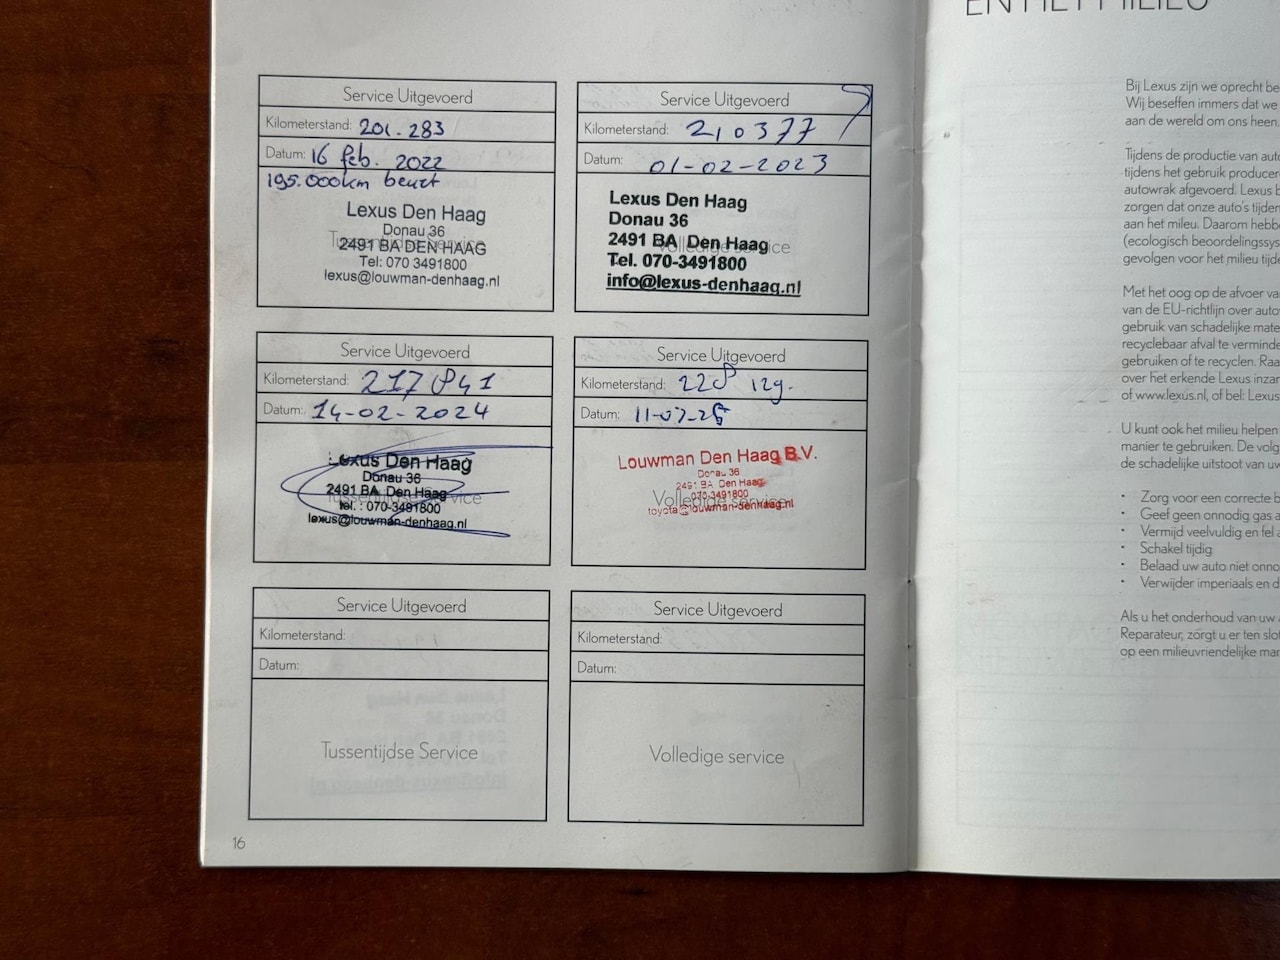 EN HET MILIEU
Service Uitgevoerd
Kilometerstand: 201.283
Datum: 16 feb. 2022
195.000km beurt
Lexus Den Haag
Donau 36
2491 BA DEN HAAG
Tussentijdse Service
Tel: 070 3491800
lexus@louwman-denhaag.nl
Service Uitgevoerd
Kilometerstand: 210377
Datum: 01-02-2023
Lexus Den Haag
Donau 36
2491 BA Den Haag
Volledige service
Tel. 070-3491800
info@lexus-denhaag.nl
Service Uitgevoerd
Kilometerstand: 217841
Datum: 14-02-2024
Lexus Den Haag
Donau 36
2491 BA Den Haag
Tussentijdse Service
tel. : 070-3491800
lexus@louwman-denhaag.nl
Service Uitgevoerd
Kilometerstand:
Datum:
Louwman Den Haag B.V.
Donau 36
2491 BA Den Haag
070-3491800
Volledige service
toyota@louwman-denhaag.nl
Service Uitgevoerd
Kilometerstand:
Datum:
Tussentijdse Service
Service Uitgevoerd
Kilometerstand:
Datum:
Volledige service
16
Bij Lexus zijn we oprecht be
Wij beseffen immers dat we
aan de wereld om ons heen.
Tijdens de productie van auto
tijdens het gebruik producer
autowrak afgevoerd. Lexus b
zorgen dat onze auto's tijden
aan het mileu. Daarom hebb
(ecologisch beoordelingssys
gevolgen voor het milieu tijde
Met het oog op de afvoer va
van de EU-richtlijn over auto
gebruik van schadelijke mate
recyclebaar afval te verminde
gebruiken of te recyclen. Raa
over het erkende Lexus inzar
of www.lexus.nl, of bel: Lexus
U kunt ook het milieu helpen
manier te gebruiken. De volg
de schadelijke uitstoot van uw
• Zorg voor een correcte b
• Geef geen onnodig gas a
• Vermijd veelvuldig en fel a
• Schakel tijdig
• Belaad uw auto niet onno
• Verwijder imperiaals en d
Als u het onderhoud van uw
Reparateur, zorgt u er ten slot
op een milieuvriendelijke mar